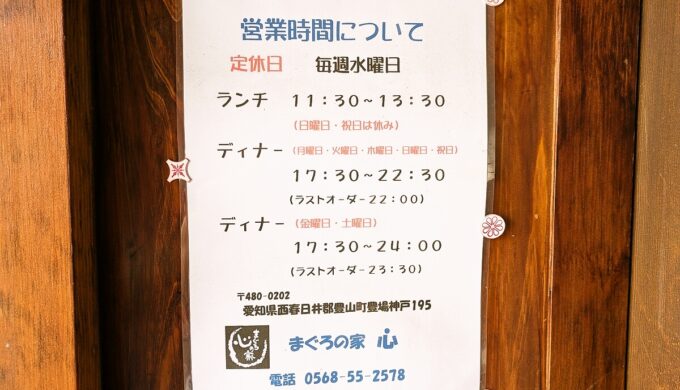 営業時間について
定休日　毎週水曜日
ランチ　11：30～13：30
（日曜日・祝日は休み）
ディナー（月曜日・火曜日・木曜日・日曜日・祝日）
17：30～22：30
（ラストオーダー22：00）
ディナー（金曜日・土曜日）
17：30～24：00
（ラストオーダー23：30）
〒480-0202
愛知県西春日井郡豊山町豊場神戸195
まぐろの家 心
まぐろの家　心
電話 0568-55-2578